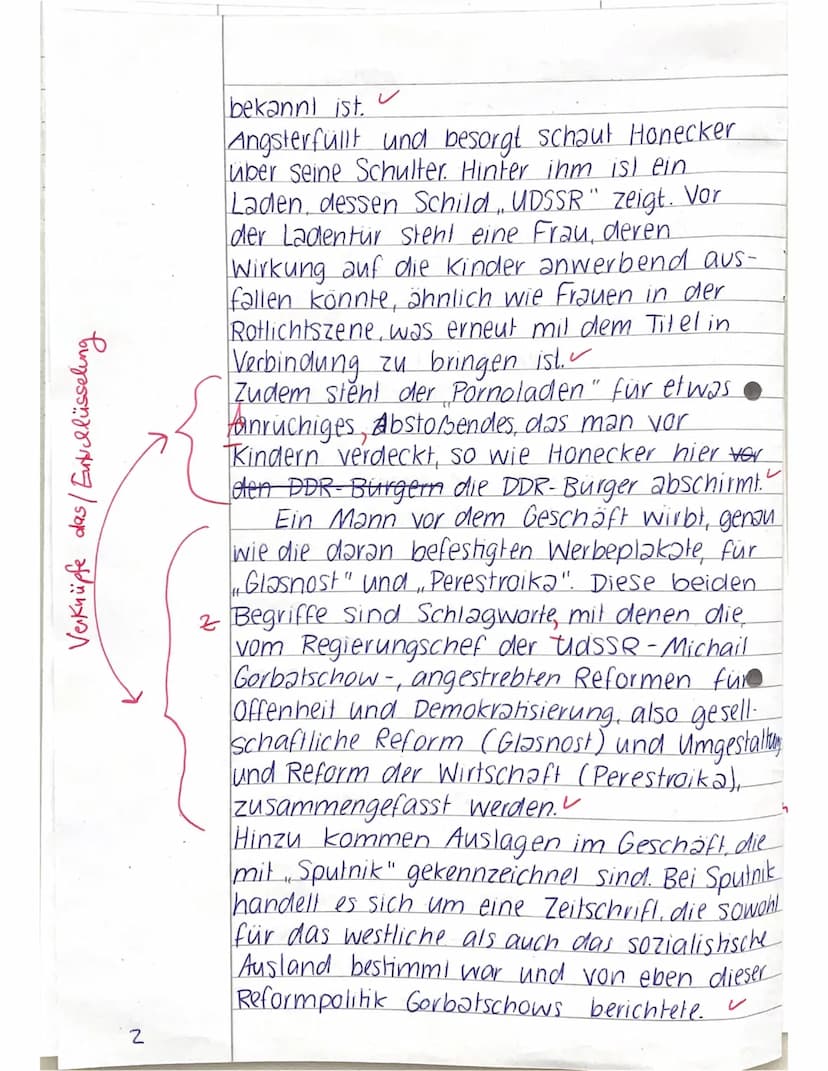 bekannt ist. ✓
Angsterfüllt und besorgt schaut Honecker
über seine Schulter. Hinter ihm ist ein
Laden, dessen Schild „UDSSR" zeigt. Vor
der Ladentür steht eine Frau, deren
Wirkung auf die Kinder anwerbend aus-
fallen könnte, ähnlich wie Frauen in der
Rotlichtszene, was erneut mit dem Titel in
Verbindung zu bringen ist. ✓
Zudem steht der „Pornoladen" für etwas
Anrüchiges, Abstoßendes, das man vor
Kindern verdeckt, so wie Honecker hier vor
den DDR-Bürgern die DDR-Bürger abschirmt. ✓
Ein Mann vor dem Geschäft wirbt, genau
wie die daran befestigten Werbeplakate, für
„Glasnost" und „Perestroika". Diese beiden
Z Begriffe sind Schlagworte, mit denen die
vom Regierungschef der UdSSR - Michail
Gorbatschow -, angestrebten Reformen für
Offenheit und Demokratisierung, also gesell-
schaftliche Reform (Glasnost) und Umgestaltung
und Reform der Wirtschaft (Perestroika),
zusammengefasst werden. ✓
Hinzu kommen Auslagen im Geschäft, die
mit „Sputnik" gekennzeichnet sind. Bei Sputnik
handelt es sich um eine Zeitschrift, die sowohl
für das westliche als auch das sozialistische
Ausland bestimmt war und von eben dieser
Reformpolitik Gorbatschows berichtete. ✓
Verknüpfe das / Entschlüsselung
2